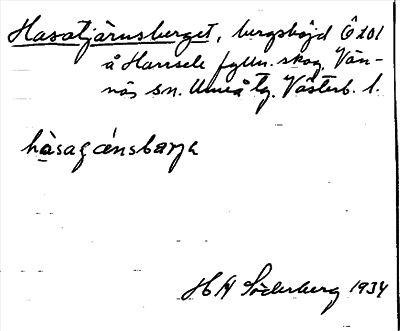 Hasatjärnsberget, bergshöjd Ö tol
å Harrsele fylln. skog, Vän-
näs sn. Umeå tg. Västerb. l.
hàsagánsbarja
H A Söderberg 1934